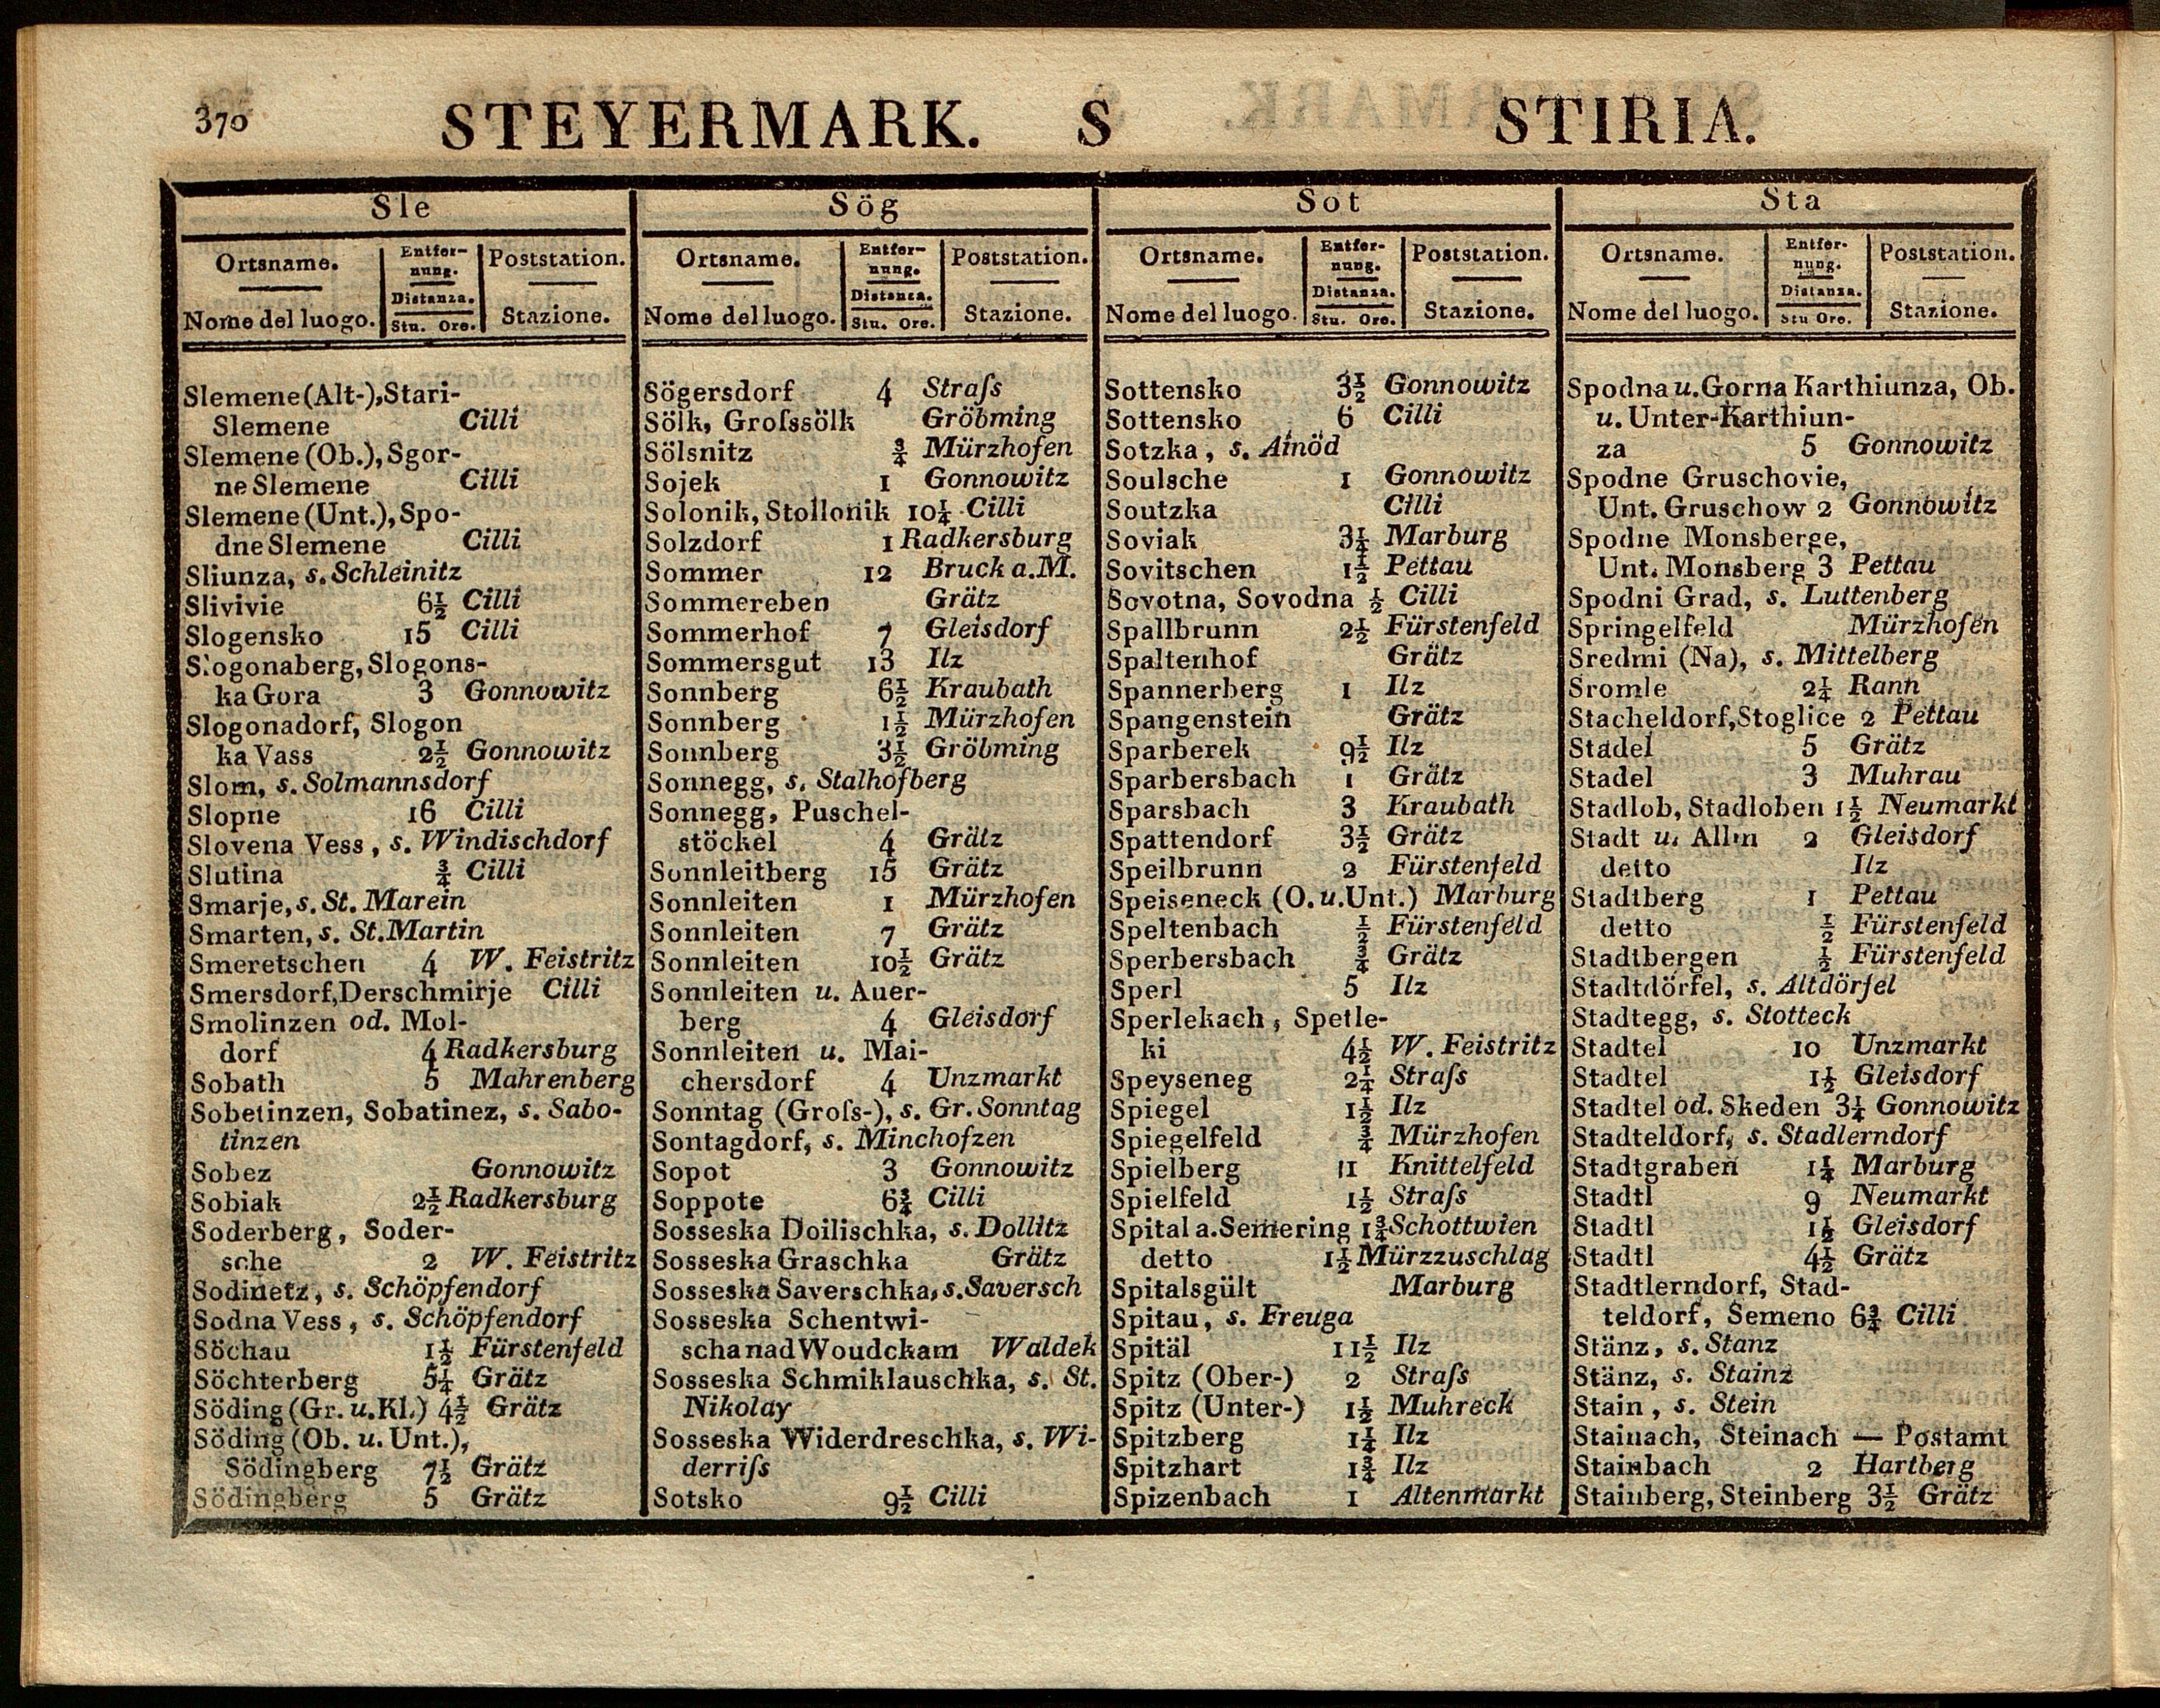 370
STEYERMARK. S STIRIA.
Sle
Ortsname. Entfer- Poststation.
nung.
Distanza.
Nome del luogo. Stu. Ore. Stazione.
Slemene (Alt-), Stari-
Slemene Cilli
Slemene (Ob.), Sgor-
ne Slemene Cilli
Slemene (Unt.), Spo-
dne Slemene Cilli
Sliunza, s. Schleinitz
Slivivie 6½ Cilli
Slogensko 15 Cilli
Slogonaberg, Slogons-
ka Gora 3 Gonnowitz
Slogonadorf, Slogon
ka Vass 2½ Gonnowitz
Slom, s. Solmannsdorf
Slopne 16 Cilli
Slovena Vess, s. Windischdorf
Slutina ¾ Cilli
Smarje, s. St. Marein
Smarten, s. St. Martin
Smeretschen 4 W. Feistritz
Smersdorf, Derschmirje Cilli
Smolinzen od. Mol-
dorf 4 Radkersburg
Sobath 5 Mahrenberg
Sobetinzen, Sobatinez, s. Sabo-
tinzen
Sobez Gonnowitz
Sobiak 2½ Radkersburg
Soderberg, Soder-
sche 2 W. Feistritz
Sodinetz, s. Schöpfendorf
Sodna Vess, s. Schöpfendorf
Söchau 1½ Fürstenfeld
Söchterberg 5¼ Grätz
Söding (Gr. u. Kl.) 4½ Grätz
Söding (Ob. u. Unt.),
Södingberg 7½ Grätz
Södingberg 5 Grätz
Sög
Ortsname. Entfer- Poststation.
nung.
Distanza.
Nome del luogo. Stu. Ore. Stazione.
Sögersdorf 4 Straſs
Sölk, Groſssölk Gröbming
Sölsnitz ¾ Mürzhofen
Sojek 1 Gonnowitz
Solonik, Stollonik 10¼ Cilli
Solzdorf 1 Radkersburg
Sommer 12 Bruck a. M.
Sommereben Grätz
Sommerhof 7 Gleisdorf
Sommersgut 13 Ilz
Sonnberg 6½ Kraubath
Sonnberg 1½ Mürzhofen
Sonnberg 3½ Gröbming
Sonnegg, s. Stalhofberg
Sonnegg, Puschel-
stöckel 4 Grätz
Sonnleitberg 15 Grätz
Sonnleiten 1 Mürzhofen
Sonnleiten 7 Grätz
Sonnleiten 10½ Grätz
Sonnleiten u. Auer-
berg 4 Gleisdorf
Sonnleiten u. Mai-
chersdorf 4 Unzmarkt
Sonntag (Groſs-), s. Gr. Sonntag
Sontagdorf, s. Minchofzen
Sopot 3 Gonnowitz
Soppote 6¾ Cilli
Sosseska Doilischka, s. Dollitz
Sosseska Graschka Grätz
Sosseska Saverschka, s. Saversch
Sosseska Schentwi-
scha nad Woudckam Waldek
Sosseska Schmiklauschka, s. St.
Nikolay
Sosseska Widerdreschka, s. Wi-
derriſs
Sotsko 9½ Cilli
Sot
Ortsname. Entfer- Poststation.
nung.
Distanza.
Nome del luogo. Stu. Ore. Stazione.
Sottensko 3½ Gonnowitz
Sottensko 6 Cilli
Sotzka, s. Ainöd
Soulsche 1 Gonnowitz
Soutzka Cilli
Soviak 3¼ Marburg
Sovitschen 1½ Pettau
Sovotna, Sovodna ½ Cilli
Spallbrunn 2½ Fürstenfeld
Spaltenhof Grätz
Spannerberg 1 Ilz
Spangenstein Grätz
Sparberek 9½ Ilz
Sparbersbach 1 Grätz
Sparsbach 3 Kraubath
Spattendorf 3½ Grätz
Speilbrunn 2 Fürstenfeld
Speiseneck (O. u. Unt.) Marburg
Speltenbach ½ Fürstenfeld
Sperbersbach ¾ Grätz
Sperl 5 Ilz
Sperlekach, Spetle-
ki 4½ W. Feistritz
Speyseneg 2¼ Straſs
Spiegel 1½ Ilz
Spiegelfeld ¾ Mürzhofen
Spielberg 11 Knittelfeld
Spielfeld 1½ Straſs
Spital a. Semering 1¾ Schottwien
detto 1½ Mürzzuschlag
Spitalsgült Marburg
Spitau, s. Freuga
Spitäl 11½ Ilz
Spitz (Ober-) 2 Straſs
Spitz (Unter-) 1½ Muhreck
Spitzberg 1¼ Ilz
Spitzhart 1¾ Ilz
Spizenbach 1 Altenmarkt
Sta
Ortsname. Entfer- Poststation.
nung.
Distanza.
Nome del luogo. Stu Ore. Stazione.
Spodna u. Gorna Karthiunza, Ob.
u. Unter-Karthiun-
za 5 Gonnowitz
Spodne Gruschovie,
Unt. Gruschow 2 Gonnowitz
Spodne Monsberge,
Unt. Monsberg 3 Pettau
Spodni Grad, s. Luttenberg
Springelfeld Mürzhofen
Sredmi (Na), s. Mittelberg
Sromle 2¼ Rann
Stacheldorf, Stoglice 2 Pettau
Stadel 5 Grätz
Stadel 3 Muhrau
Stadlob, Stadloben 1½ Neumarkt
Stadt u. Allin 2 Gleisdorf
detto Ilz
Stadtberg 1 Pettau
detto ½ Fürstenfeld
Stadtbergen ½ Fürstenfeld
Stadtdörfel, s. Altdörfel
Stadtegg, s. Stotteck
Stadtel 10 Unzmarkt
Stadtel 1½ Gleisdorf
Stadtel od. Skeden 3¼ Gonnowitz
Stadteldorf, s. Stadlerndorf
Stadtgraben 1¼ Marburg
Stadtl 9 Neumarkt
Stadtl 1½ Gleisdorf
Stadtl 4½ Grätz
Stadtlerndorf, Stad-
teldorf, Semeno 6¾ Cilli
Stänz, s. Stanz
Stänz, s. Stainz
Stain, s. Stein
Stainach, Steinach — Postamt
Stainbach 2 Hartberg
Stainberg, Steinberg 3½ Grätz